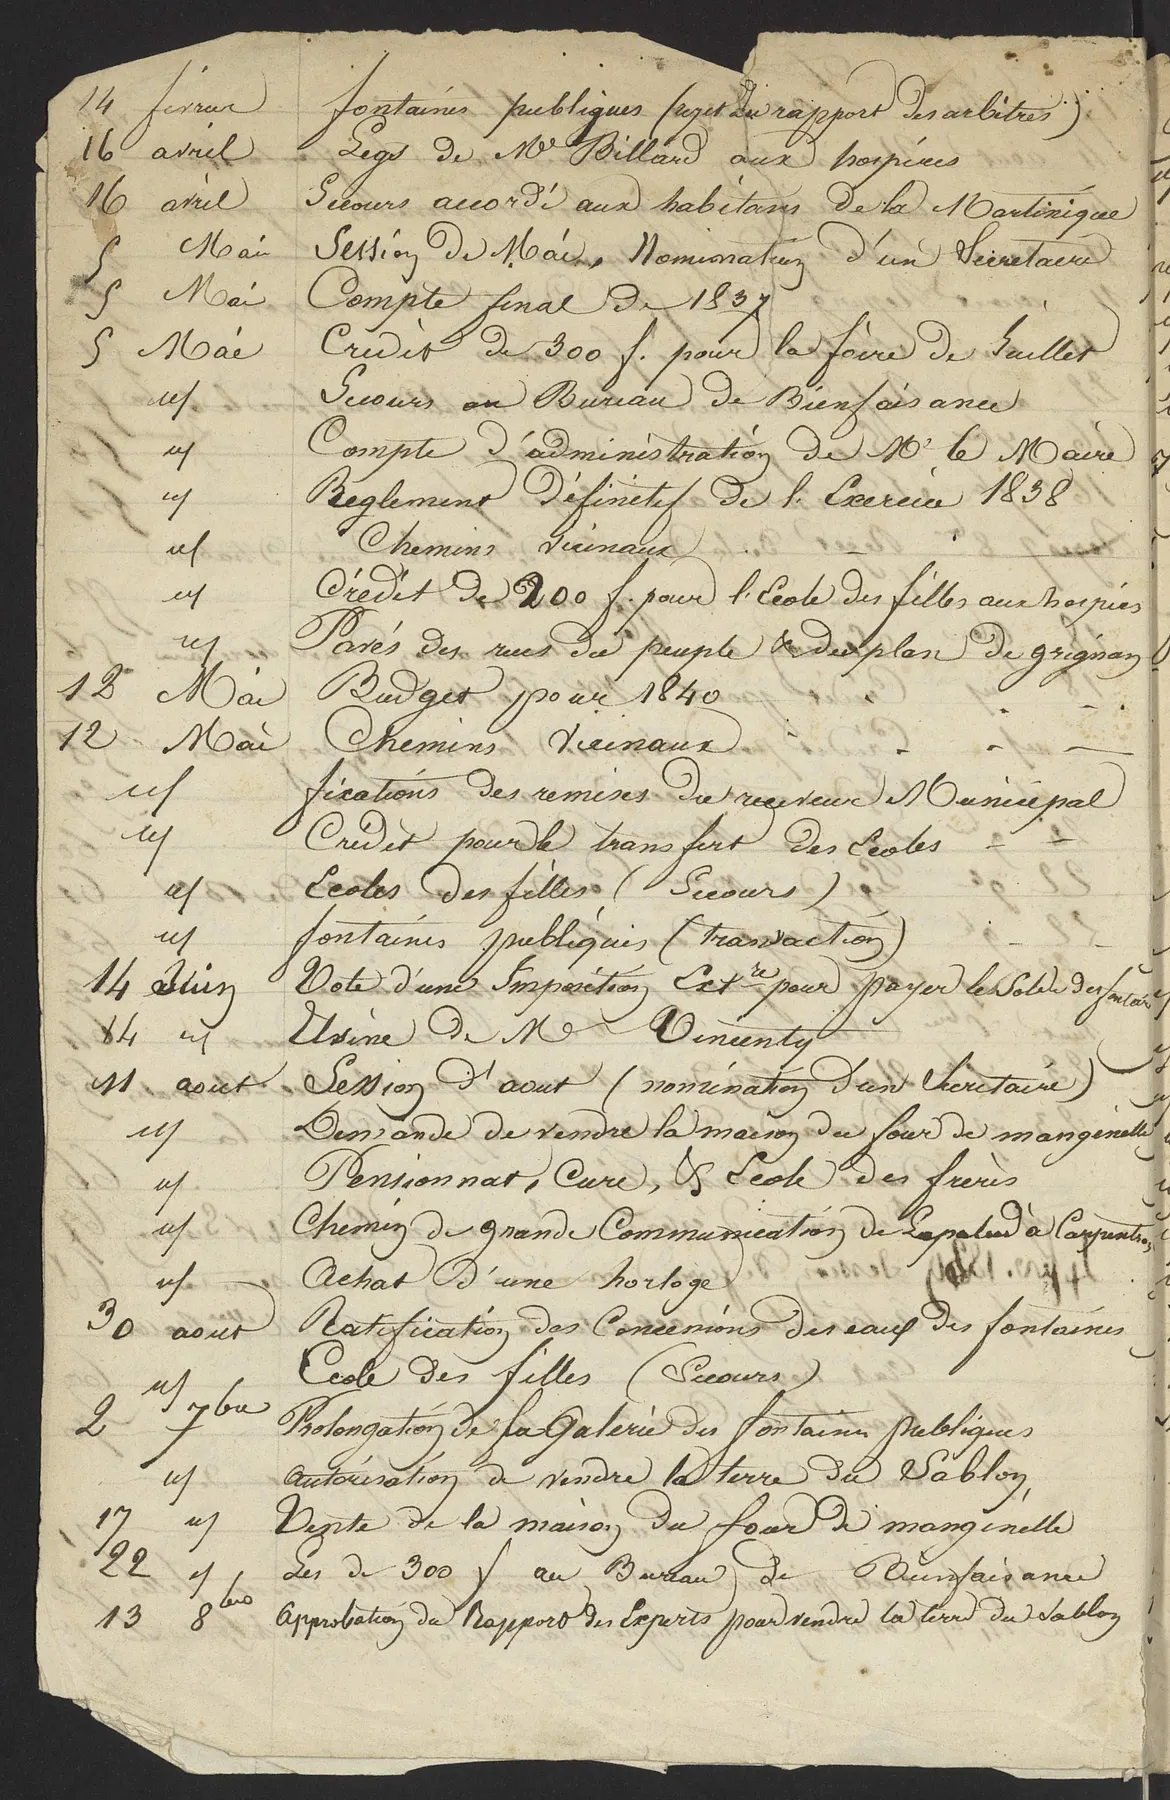 14 février fontaines publiques (rejet du rapport des arbitres)
16 avril Legs de Mr Billard aux hospices
16 avril Secours accordé aux habitans de la Martinique
5 Mai Session de Mai, Nomination d'un Secretaire
5 Mai Compte final de 1837
5 Mai Crédit de 300 f. pour la foire de Juillet
id Secours au Bureau de Bienfaisance
id Compte d'administration de Mr le Maire
id Reglement définitif de l'Exercice 1838
id Chemins vicinaux
id Crédit de 200 f. pour l'Ecole des filles aux hospices
id Pavés des rues du peuple & du plan de grignan
12 Mai Budget pour 1840
12 Mai Chemins Vicinaux
id fixations des remises du receveur Municipal
id Crédit pour le transfert des Ecoles
id Ecoles des filles (Secours)
id fontaines publiques (transaction)
14 Juin Vote d'une Imposition Extre pour payer le solde des fontaines
14 id Usine de Mr Vincenty
11 aout Session d'aout (nomination d'un Secretaire)
id Demande de vendre la maison du four de manginelle
id Pensionnat, Cure, & Ecole des frères
id Chemin de grande Communication de Lapalud à Carpentras
id Achat d'une horloge
30 aout Ratification des Concessions des eaux des fontaines
id Ecole des filles (Secours)
2 7bre Prolongation de la Galerie des fontaines publiques
id autorisation de vendre la terre du Sablon,
17 id Vente de la maison du four de manginelle
22 id Les de 300 f au Bureau de Bienfaisance
13 8bre Approbation du Rapport des Experts pour vendre la terre du Sablon